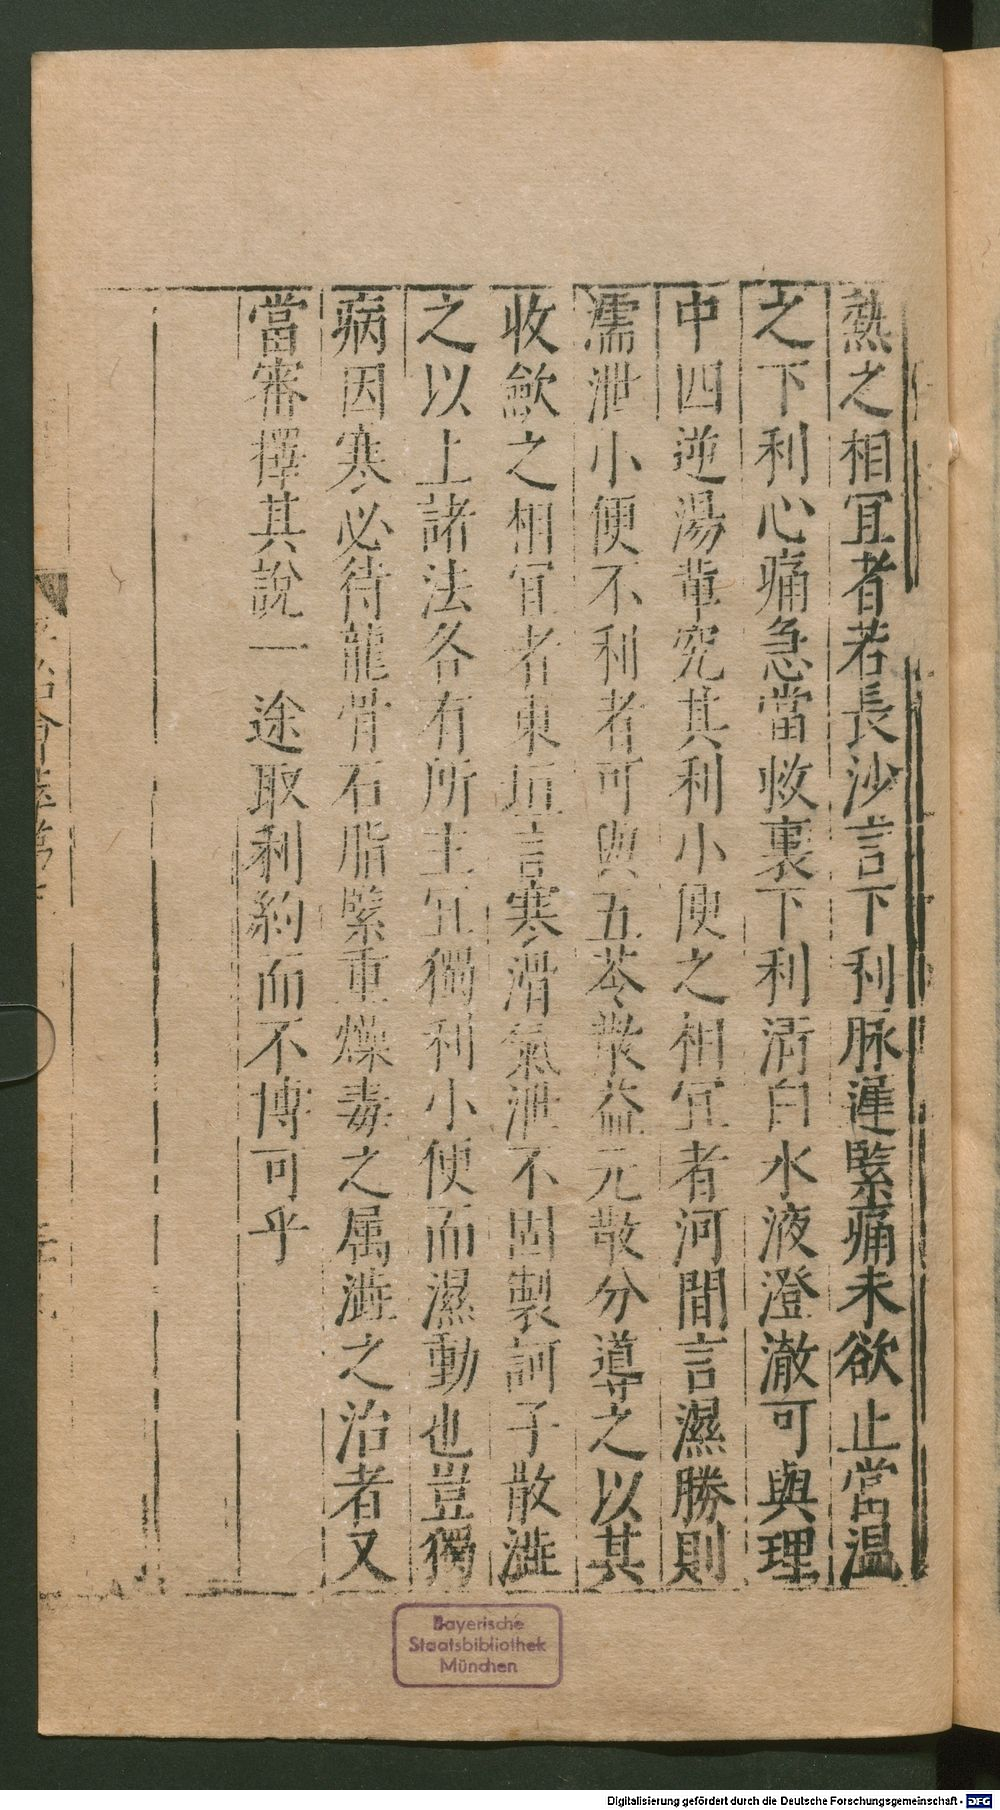 熱之相冝者若長沙言下利脉遲緊痛未欲止當温
之下利心痛急當救裏下利清白水液澄澈可與理
中四逆湯軰究其利小便之相冝者河間言濕勝則
濡泄小便不利者可與五苓散益元散分導之以其
收歛之相冝者東垣言寒滑氣泄不固製訶子散澁
之以上諸法各有所主冝獨利小便而濕動也豈獨
病因寒必待龍骨石脂緊重燥毒之属澁之治者又
當審擇其說一途取利約而不博可乎
Bayerische
Staatsbibliothek
München
Digitalisierung gefördert durch die Deutsche Forschungsgemeinschaft - DFG